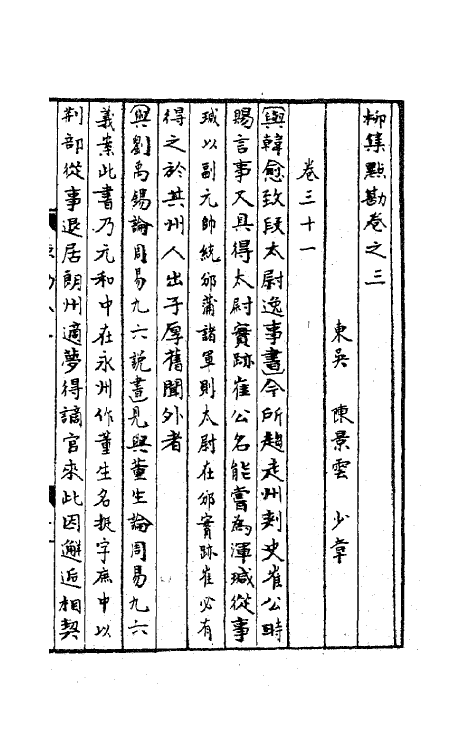 柳集點勘卷之三
東吳　陳景雲　少章
卷三十一
與韓愈致段太尉逸事書今所趨走州刺史崔公時
賜言事又具得太尉實跡崔公名能嘗為渾瑊從事
瑊以副元帥統邠蒲諸軍則太尉在邠實跡崔必有
得之於其州人出子厚舊聞外者
與劉禹錫論周易九六說書見與董生論周易九六
義案此書乃元和中在永州作董生名挺字庶中以
荆部從事退居朗州適夢得謫官來此因邂逅相契